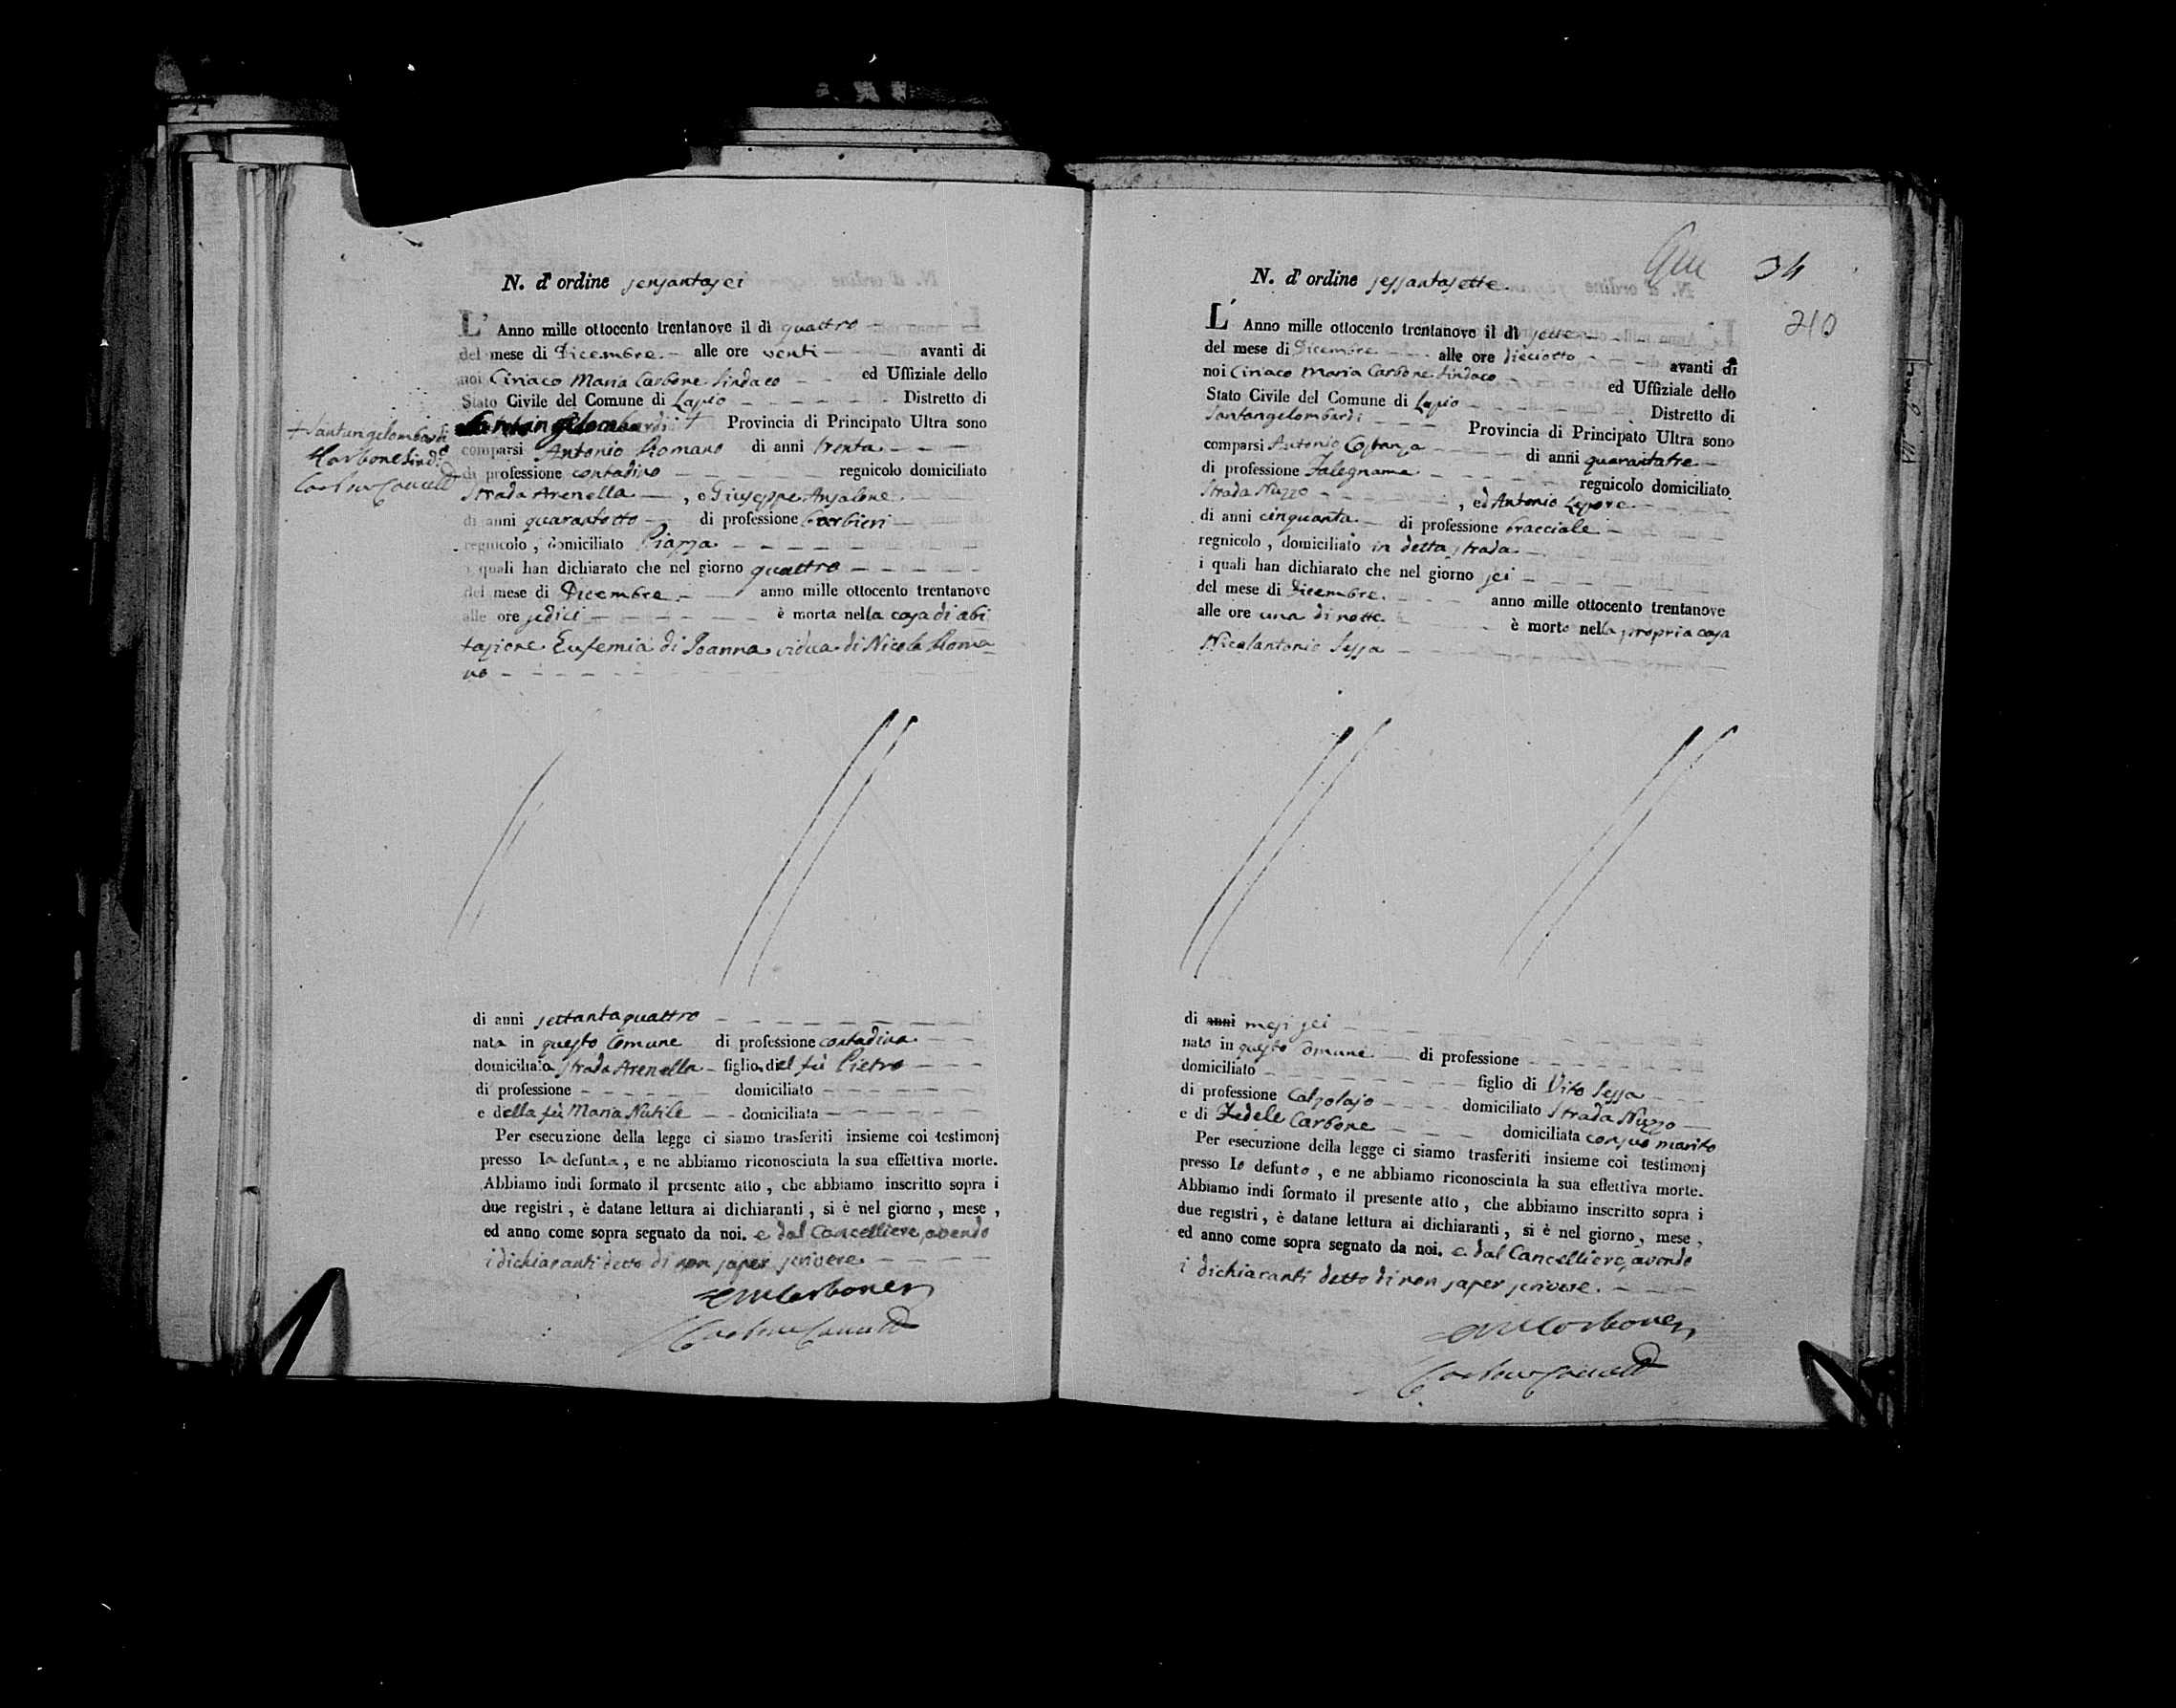 N. d'ordine sessantasei
L' Anno mille ottocento trentanove il dì quattro
del mese di Dicembre alle ore venti avanti di
noi Ciriaco Maria Carbone Sindaco ed Uffiziale dello
Stato Civile del Comune di Lapio Distretto di
Santangelombardi + Provincia di Principato Ultra sono
comparsi Antonio Romano di anni trenta
di professione contadino regnicolo domiciliato
Strada Arenella, e Giuseppe Anzalone
di anni quarantotto di professione barbieri
regnicolo, domiciliato Piazza
i quali han dichiarato che nel giorno quattro
del mese di Dicembre anno mille ottocento trentanove
alle ore sedici è morta nella casa di abi
tazione Eufemia di Joanna vidua di Nicola Roma
no
di anni settantaquattro
nata in questo Comune di professione contadina
domiciliata Strada Arenella figlia del fù Pietro
di professione domiciliato
e della fù Maria Nutile domiciliata
Per esecuzione della legge ci siamo trasferiti insieme coi testimonj
presso la defunta, e ne abbiamo riconosciuta la sua effettiva morte.
Abbiamo indi formato il presente atto, che abbiamo inscritto sopra i
due registri, è datane lettura ai dichiaranti, si è nel giorno, mese,
ed anno come sopra segnato da noi. e dal Cancelliere, avendo
i dichiaranti detto di non saper scrivere.
+ Santangelombardi
Carbone Sind.
N. d'ordine sessantasette.
34
210
L' Anno mille ottocento trentanove il dì sette
del mese di Dicembre alle ore dieciotto avanti di
noi Ciriaco Maria Carbone Sindaco ed Uffiziale dello
Stato Civile del Comune di Lapio Distretto di
Santangelombardi Provincia di Principato Ultra sono
comparsi Antonio Costanza di anni quarantatre
di professione Falegname regnicolo domiciliato
Strada Nuzzo, ed Antonio Lepore
di anni cinquanta di professione bracciale
regnicolo, domiciliato in detta strada
i quali han dichiarato che nel giorno sei
del mese di Dicembre. anno mille ottocento trentanove
alle ore una di notte. è morto nella propria casa
Nicolantonio Sessa
di anni mesi sei
nato in questo Comune di professione
domiciliato figlio di Vito Sessa
di professione Calzolajo domiciliato Strada Nuzzo
e di Fedele Carbone domiciliata con suo marito
Per esecuzione della legge ci siamo trasferiti insieme coi testimonj
presso lo defunto, e ne abbiamo riconosciuta la sua effettiva morte.
Abbiamo indi formato il presente atto, che abbiamo inscritto sopra i
due registri, è datane lettura ai dichiaranti, si è nel giorno, mese,
ed anno come sopra segnato da noi. e dal Cancelliere, avendo
i dichiaranti detto di non saper scrivere.